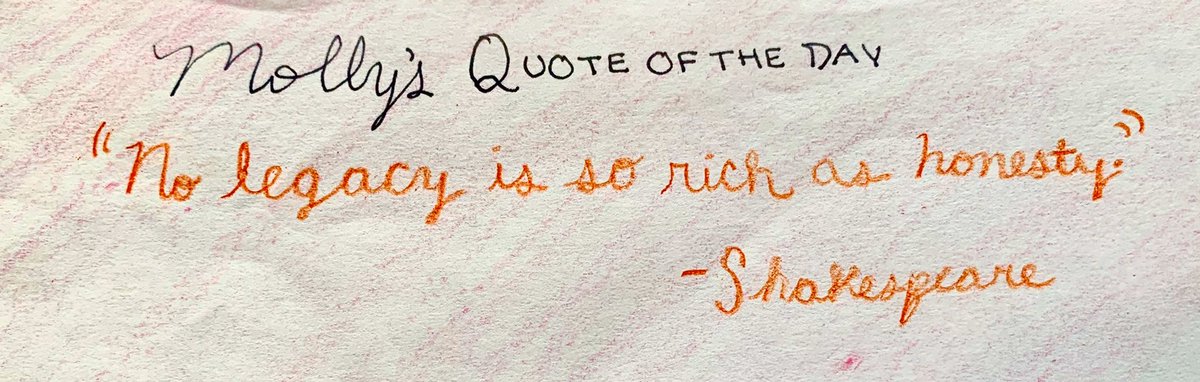 Molly's QUOTE OF THE DAY
"No legacy is so rich as honesty."
-Shakespeare